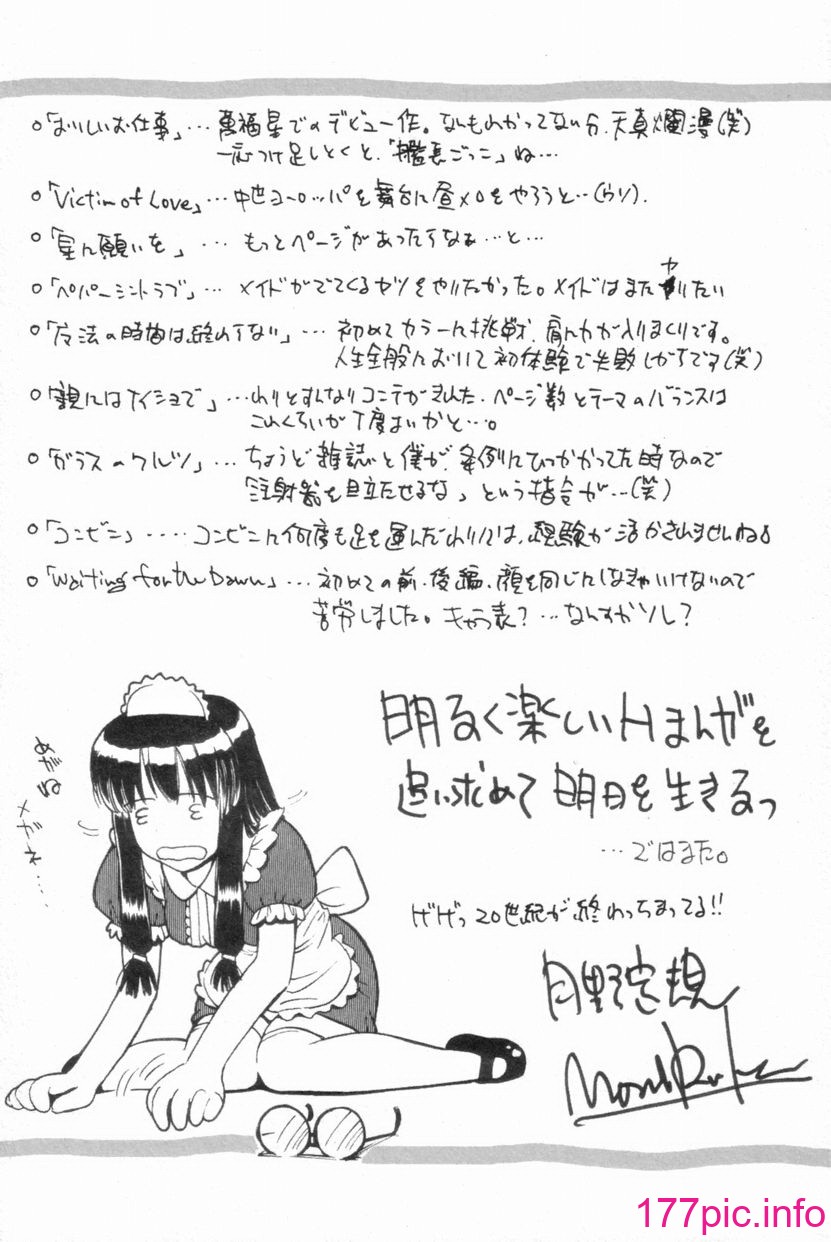 ○「おいしいお仕事」…萬福星でのデビュー作。なんもわかってない分、天真爛漫(笑)
一応つけ足しとくと、「艦長ごっこ」ね…
○「Victim of Love」…中世ヨーロッパを舞台に昼メロをやろうと…(ウソ).
○「星に願いを」…もっとページがあったらなぁ…と…
○「ペパーミントラブ」…メイドがでてくるヤツをやりたかった。メイドはまたヤりたい
○「魔法の時間は終わらない」…初めてカラーに挑戦、肩に力が入りまくりです。
人生全般において初体験で失敗しがちです(笑)
○「親にはナイショで」…わりとすんなりコンテがきれた。ページ数とテーマのバランスは
これくらいが丁度よいかと…。
○「ガラスのワルツ」…ちょうど雑誌と僕が、条例にひっかかってた時なので
「注射器を目立たせるな」という指令が…(笑)
○「コンビニ」……コンビニに何度も足を運んだわりには、経験が活かされませんね
○「Waiting for the Dawn」…初めての前・後編、顔を同じにしなきゃいけないので
苦労しました。キャラ表?…なんすかソレ?
明るく楽しいHまんがを
追い求めて明日を生きるっ
…ではまた。
げげっ20世紀が終わっちまってる!!
月野定規
めがね
メガネ…
177pic.info